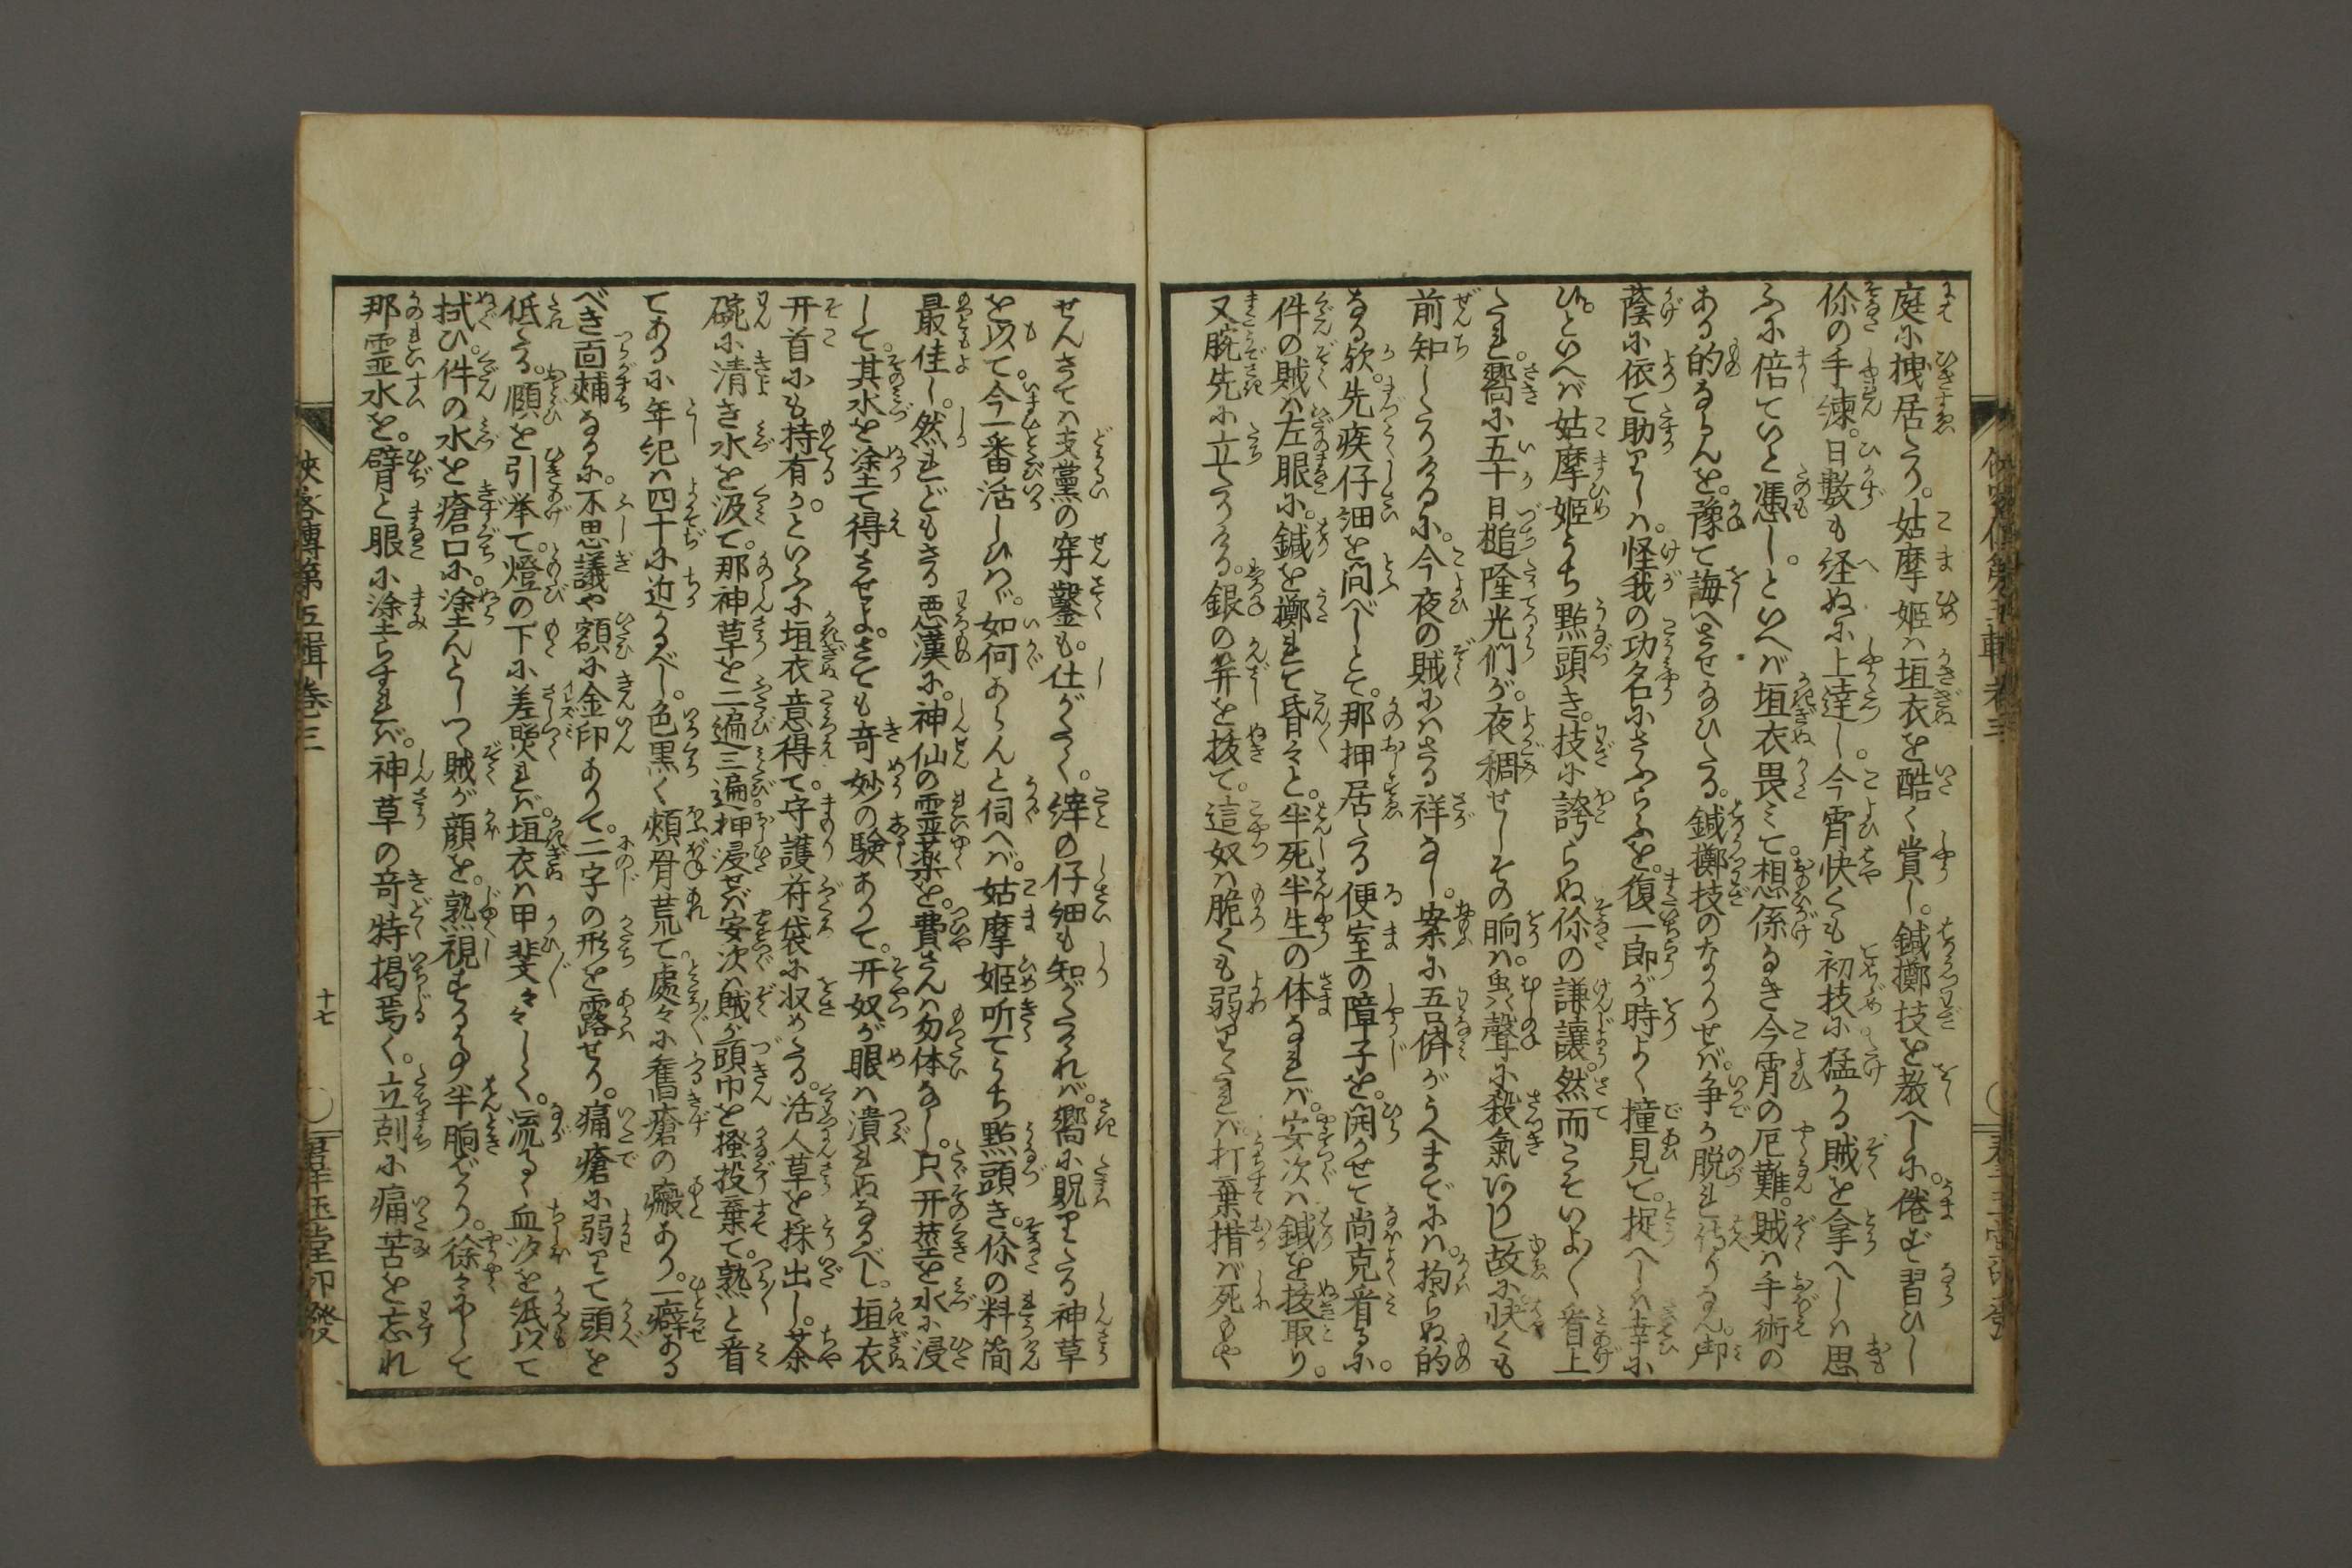 庭に拽居たり。姑摩姫は垣衣を酷く賞し。鍼擲技を教へしに。倦まず習ひし
你の手練。日數も経ぬに上達し。今宵快くも初技に猛かる賊を拿へしは思
ふに倍ていと憑し。といへば垣衣畏みて。想係なき今宵の厄難。賊は手術の
ある的ならんを。豫て誨へさせ給ひたる。鍼擲技のなかりせば。争か脱れ得ん。御
蔭に依て助りしは。怪我の功名にさふらふを。復一郎が時よく撞見て。捉へしは幸に
ひ。といへば姑摩姫うち點頭き。技に誇らぬ你の謙讓。然而こそいよ〳〵看上
たれ。嚮に五十日槌隆光們が。夜稠せしその晌は。虫聲に殺氣ありし故に。快くも
前知したりけるに。今夜の賊にはさる祥なし。案に吾儕がうへまでには。拘らぬ的
なる歟。先疾仔細を問べしとて。那押居たる便室の障子を。開かせて尚克看るに。
件の賊は左眼に。鍼を擲れて昏々と。半死半生の体なれば。安次は鍼を抜取り。
又腕先に立たりける。銀の笄を抜て。這奴は脆くも弱りたれば。打棄措ば死もや
せんさては支黨の穿鑿も。仕がたく。縡の仔細も知がたかれば。嚮に貺りたる神草
を以て。今一番活しひなば。如何あらんと伺へば。姑摩姫听てうち點頭き。你の料簡
最佳し。然れどもさる悪漢に。神仙の霊薬を。費さんは勿体なし。只开莖を水に浸
して。其水を塗て得させよ。さても奇妙の驗ありて。开奴が眼は潰れぬなるべし。垣衣
开首にも持有か。といふに垣衣意得て。守護符袋に収めたる。活人草を採出し。茶
碗に清き水を汲て。那神草を二遍三遍押浸せば安次は賊が頭巾を掻投棄て。熟と看
てあるに年紀は四十に近かるべし。色黒く頬骨荒て。處々に舊瘡の瘢あり。一癖ある
べき面魂なるに。不思議や額に金印ありて。二字の形を露せり。痛瘡に弱りて頭を
低たる。頤を引挙て。燈の下に差熨れば。垣衣は甲斐々々しく。流るゝ血汐を紙以て
拭ひ。件の水を瘡口に。塗んとしつゝ賊が顔を。熟視すること半晌ばかり。徐々にして
那霊水を。臂と眼に塗らすれば。神草の奇特掲焉く。立刻に痛苦を忘れ
俠客傳第五輯巻三
十七
群玉堂印發